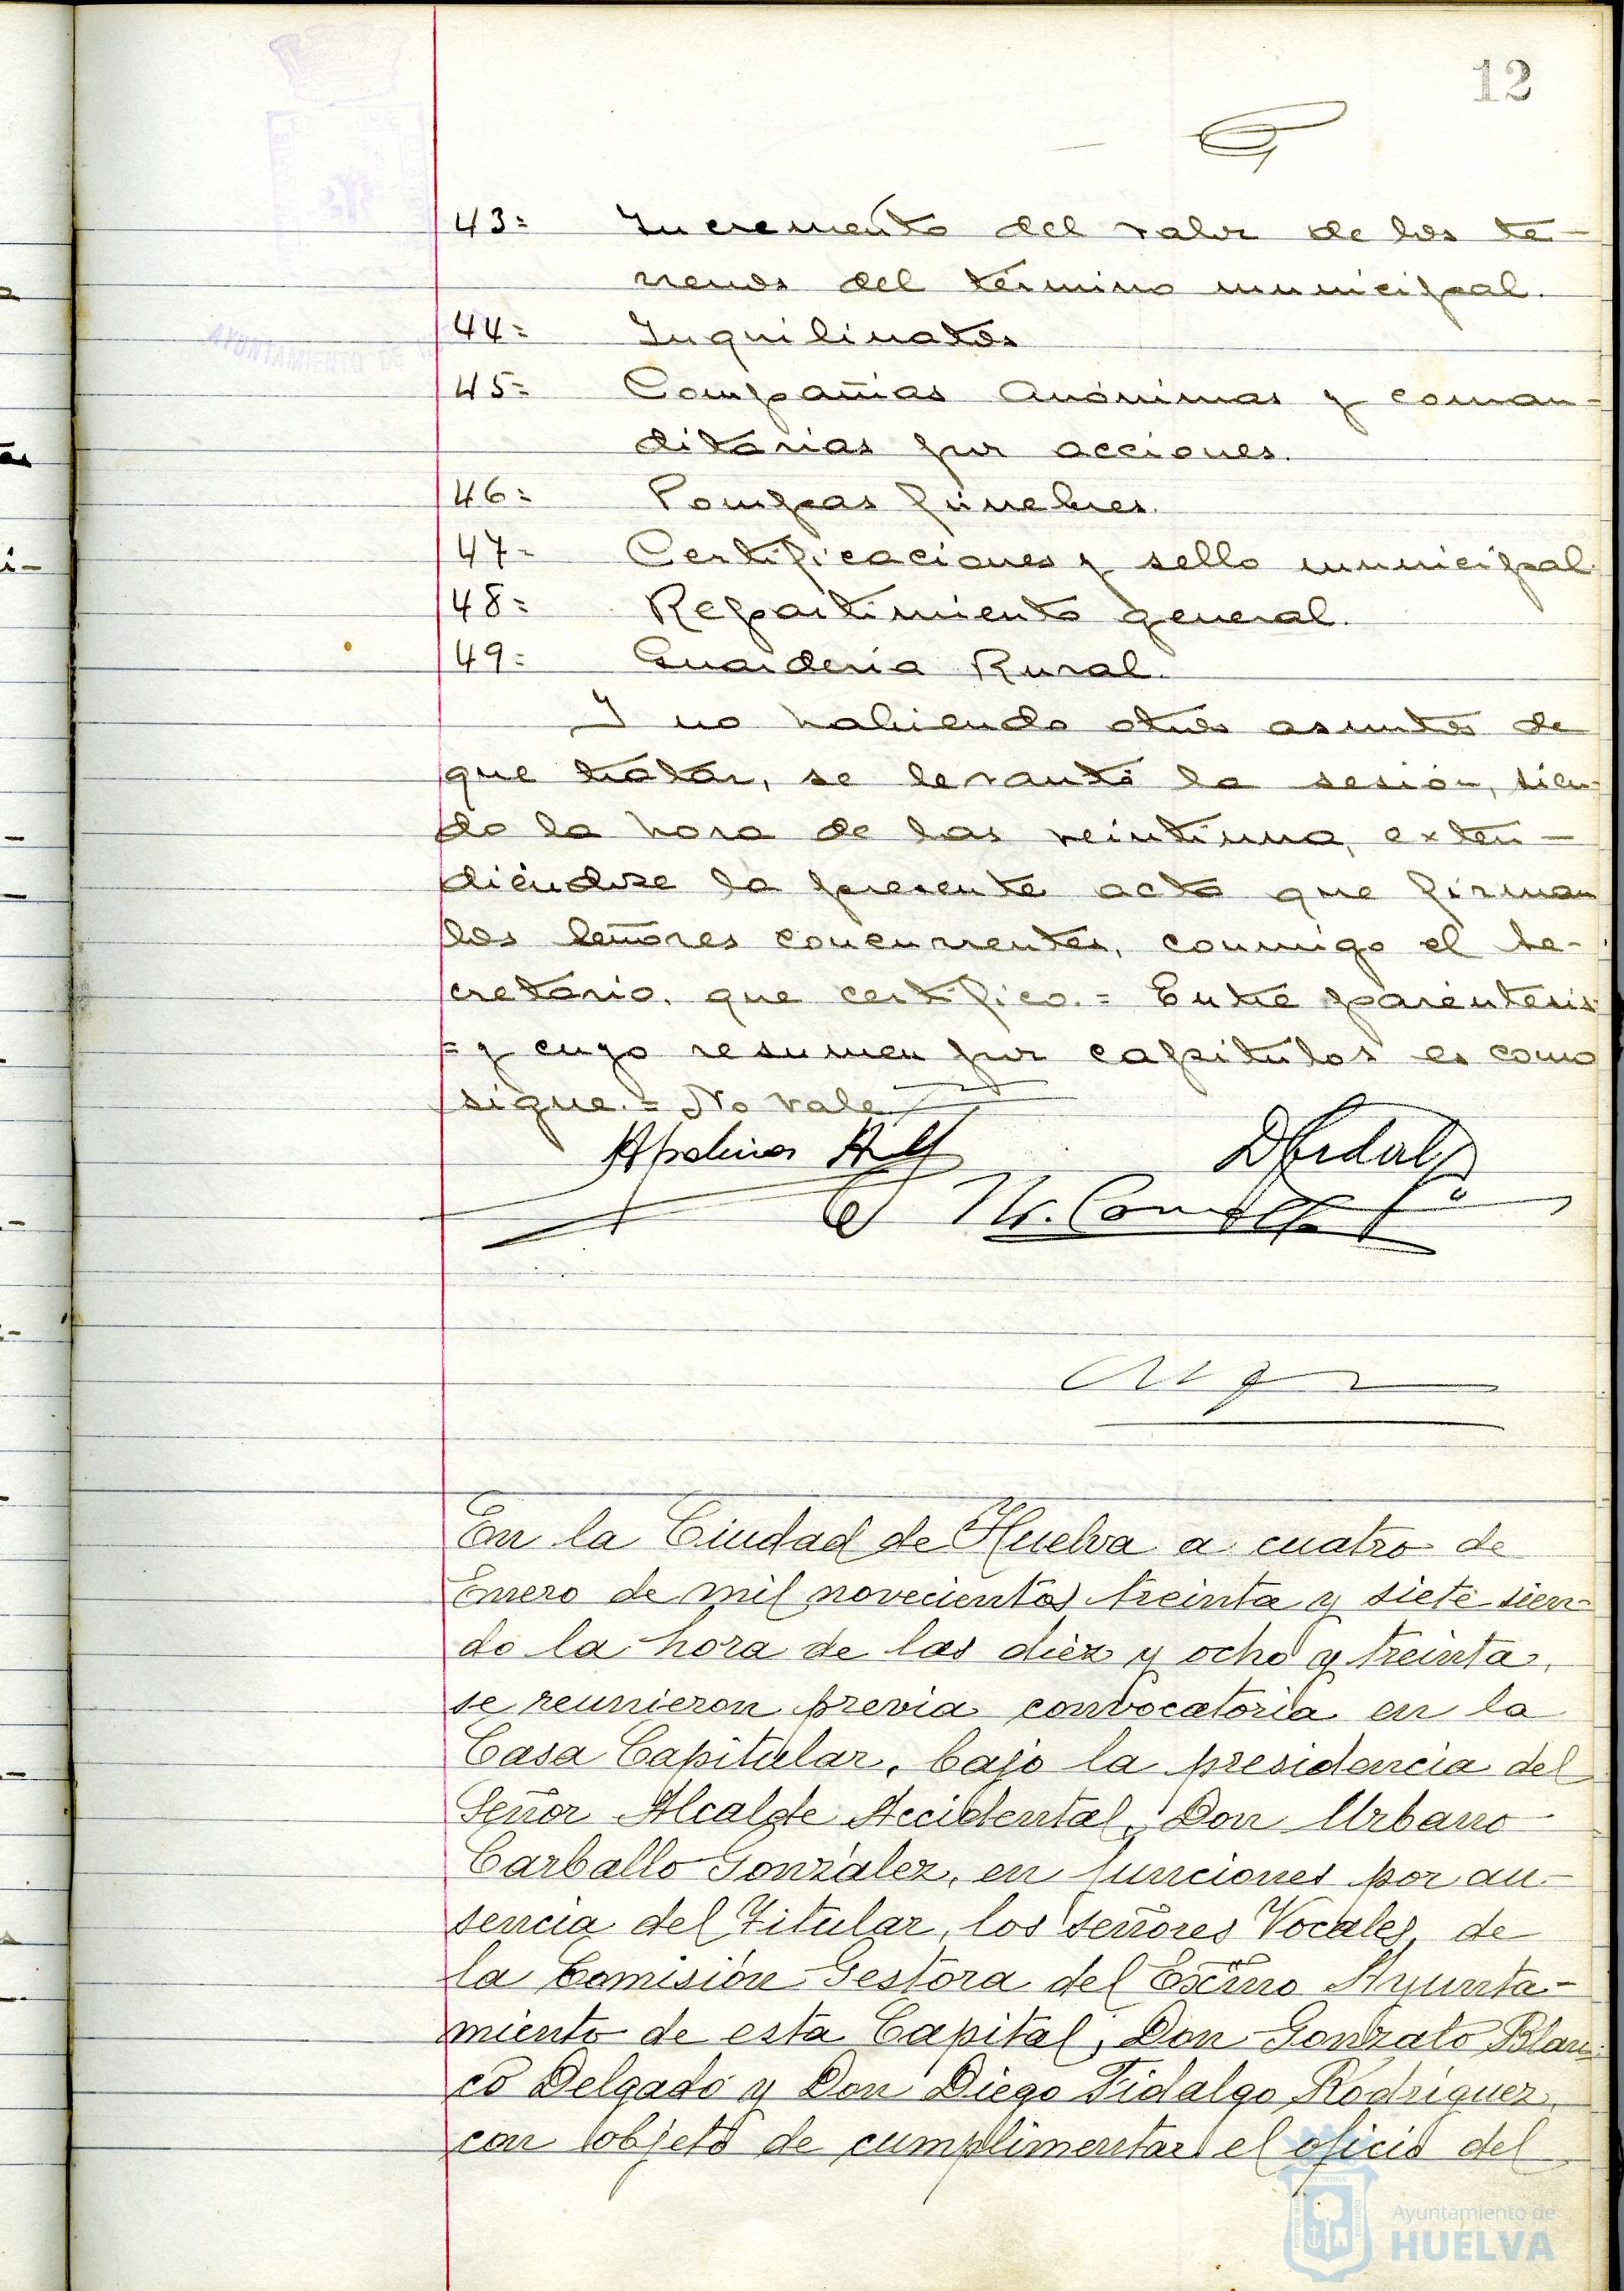 12
43= Incremento del valor de los te-
rrenos del término municipal.
44= Inquilinatos
45= Compañias Anónimas y coman-
ditarias por acciones.
46= Pompas fúnebres.
47= Certificaciones y sello municipal
48= Repartimiento general.
49= Guardería Rural.
Y no habiendo otros asuntos de
que tratar, se levantó la sesión, sien-
do la hora de las veintiuna, exten-
diéndose la presente acta que firman
los señores concurrentes, conmigo el Se-
cretario, que certifico.= Entre paréntesis
= y cuyo resumen por capitulos es como
sigue.= No vale
DFidalgo
En la Ciudad de Huelva a cuatro de
Enero de mil novecientos treinta y siete sien-
do la hora de las diez y ocho y treinta,
se reunieron previa convocatoria en la
Casa Capitular, bajo la presidencia del
Señor Alcalde Accidental, Don Urbano
Carballo González, en funciones por au-
sencia del Titular, los señores Vocales de
la Comisión Gestora del Excmo Ayunta-
miento de esta Capital, Don Gonzalo Blan-
co Delgado y Don Diego Fidalgo Rodríguez,
con objeto de cumplimentar el oficio del
AYUNTAMIENTO DE
Ayuntamiento de
HUELVA